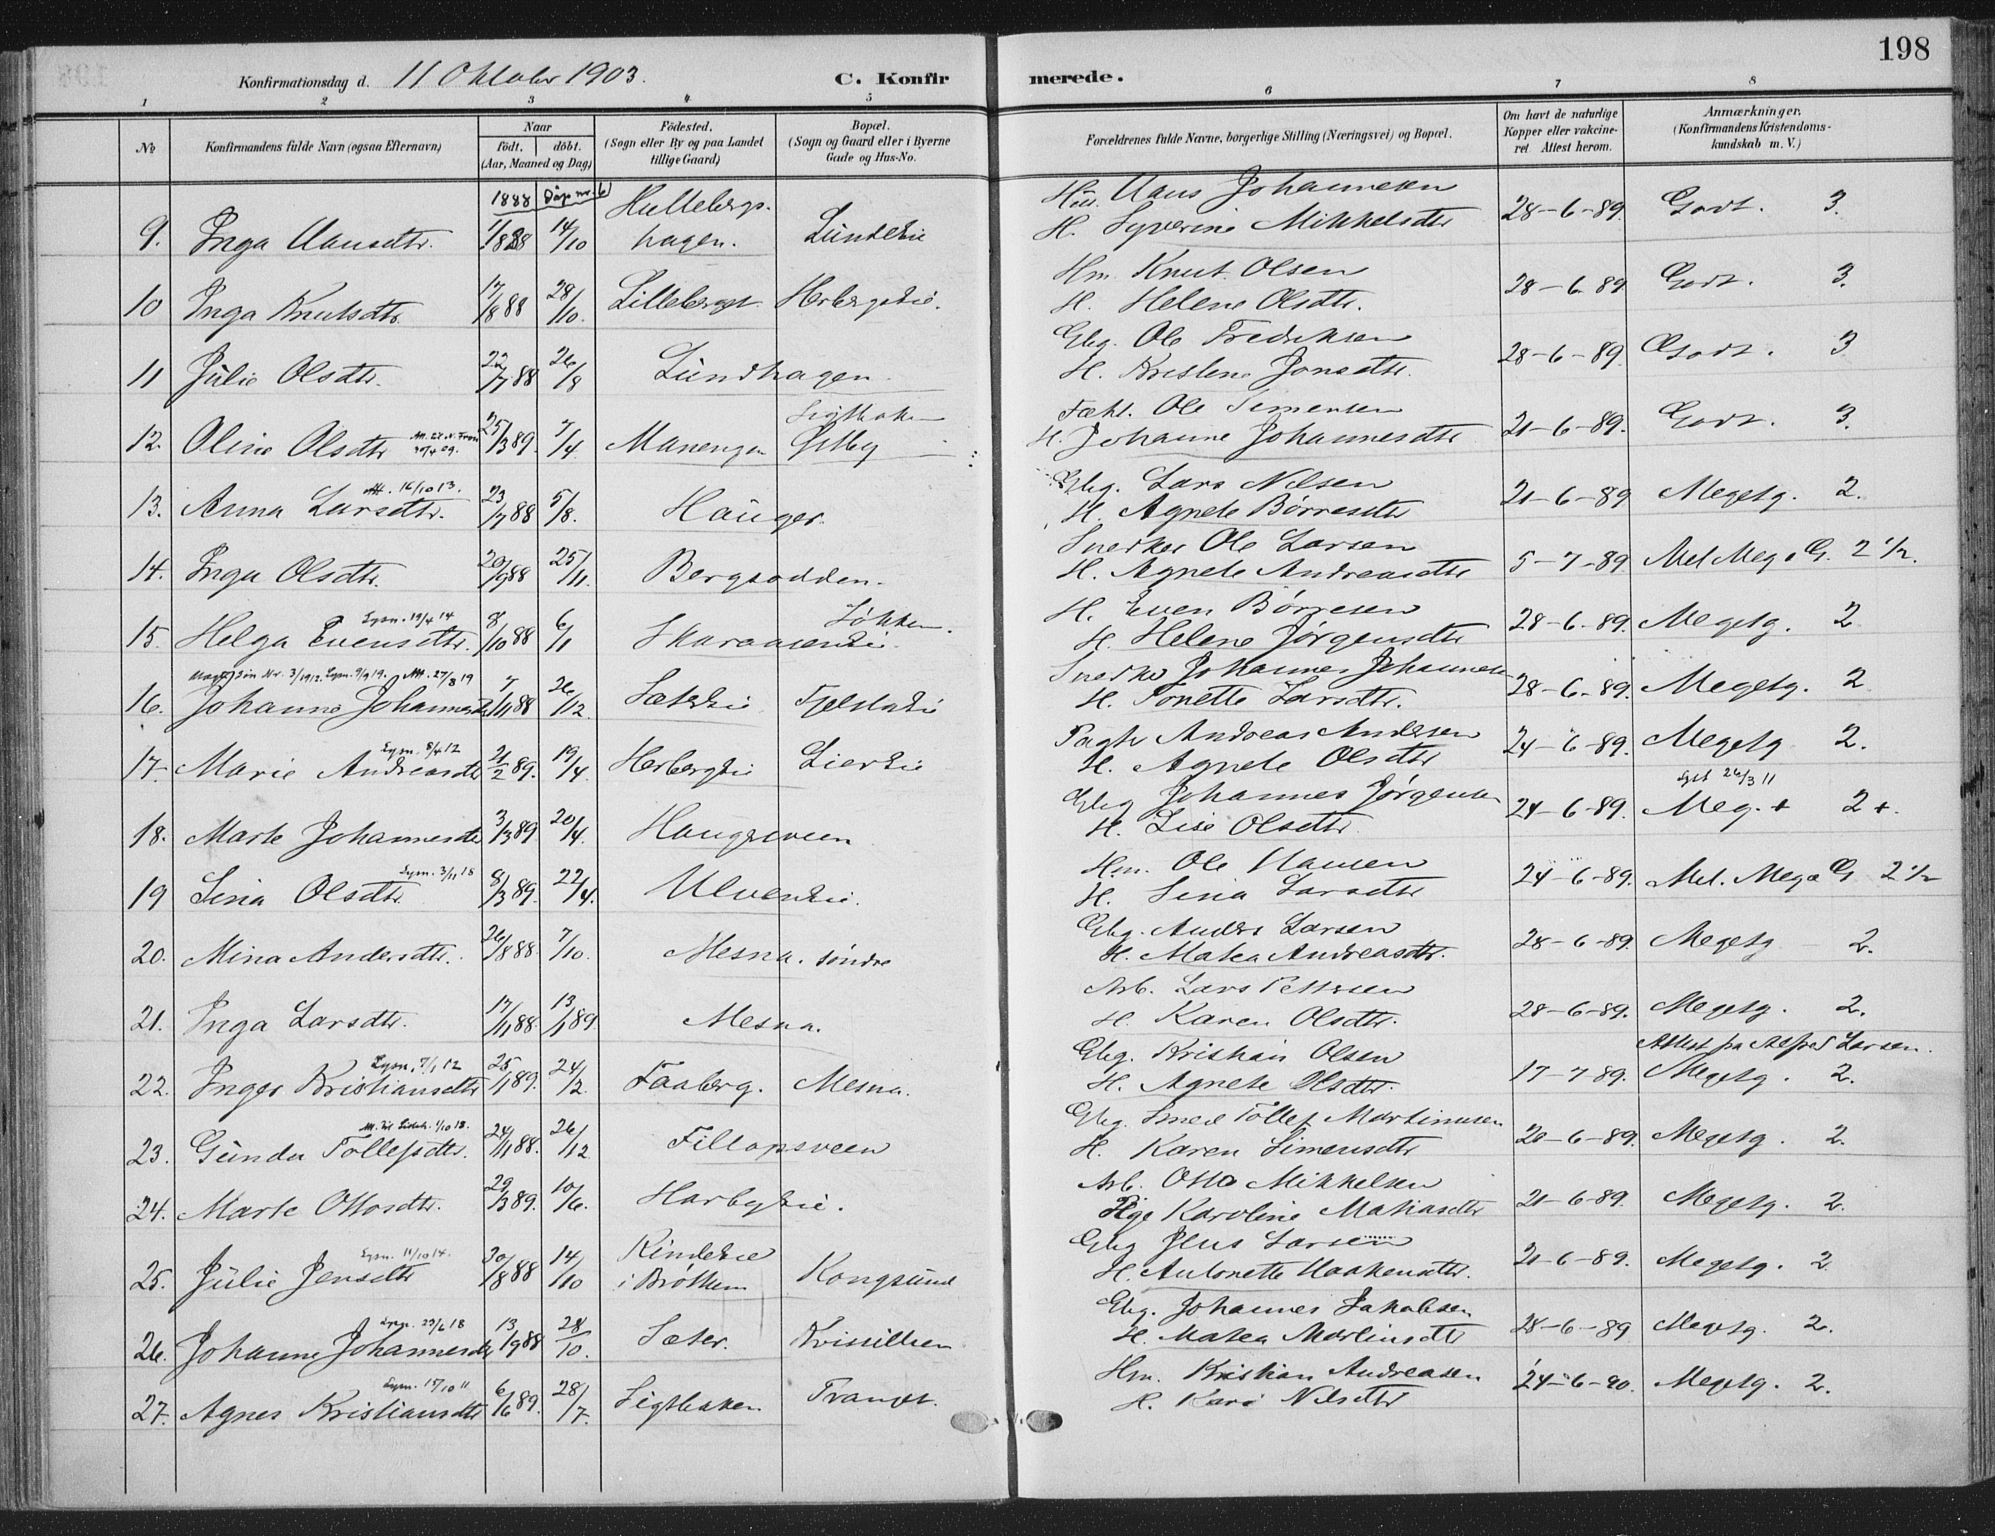 198
Konfirmationsdag d. 11 Oktober 1903. C. Konfirmerede.
1 2 3 4 5 6 7 8
No Konfirmandens fulde Navn (ogsaa Efternavn) Naar født. døbt. (Aar, Maaned og Dag) Fødested. (Sogn eller By og paa Landet tillige Gaard) Bopæl. (Sogn og Gaard eller i Byerne Gade og Hus-No. Forældrenes fulde Navne, borgerlige Stilling (Næringsvei) og Bopæl. Om havt de naturlige Kopper eller vakcineret Attest herom. Anmærkninger. (Konfirmandens Kristendomskundskab m. V.)
1888 Dåp nr. 6
9. Inga Hansdtr. 7/8 88 14/10 Hullebergshagen. Lundeeie Hans Johannesen H. Syverine Mikkelsdtr 28-6-89. Godt. 3.
10 Inga Knutsdtr. 17/8 88 28/10. Lilleberget Herbergseie. Hm. Knut Olsen H. Helene Olsdtr. 28-6-89 Godt. 3.
11 Julie Olsdtr. 22/7 88 26/8 Lundhagen Gbg. Ole Fredriksen H. Kristene Jonsdtr. 28-6-89. Godt. 3
12. Oline Olsdtr 25/3 89. 7/4. Manengen Sigstaken Østby Ole Simensen H. Johanne Johannesdtr 21-6-89. Godt. 3.
13. Anna Larsdtr. Att. 16/10 13. 23/7 88 5/8. Hauger. Gbg. Lars Nilsen H. Agnete Børresdtr 21-6-89 Megetg. 2.
14. Inga Olsdtr. 20/9 88 25/11. Bergsodden. Snedker Ole Larsen H. Agnete Andreasdtr 5-7-89 Mel. Meg. o G. 2 1/2.
15. Helga Evensdtr. Lysn. 19/4 14 8/10 88 6/11 Skaraaseneie. Løkken. H. Even Børresen H. Helene Jørgensdtr 28-6-89. Megetg. 2
16. Johanne Johannesdtr Nr. 3/1912. Lysn. 9/9 19. Att. 27/8 19 7/11 88 26/12. Sætereie Fjelstadeie Snedker Johannes Johannesen H. Tonette Larsdtr. 28-6-89. Megetg. 2
17. Marie Andreasdtr Lysn. 8/4 12 21/2 89. 19/4. Herbergseie Liereie Andreas Andersen H. Agnete Olsdtr 24-6-89. Megetg 2.
18. Marte Johannesdtr 3/3 89 20/4. Haugsveen Gbg Johannes Jørgensen H. Lise Olsdtr 24-6-89. 26/3 11 Meg. + 2+.
19 Sina Olsdtr Lysn. 3/11 18 8/3 89. 22/4. Ulveneie. Hm. Ole Hansen H. Sina Larsdtr 24-6-89. Mel. Meg o G 2 1/2
20. Mina Andersdtr. 26/8 88. 7/10. Mesna. søndre Gbg. Anders Larsen H. Matea Andreasdtr. 28-6-89. Megetg 2.
21. Inga Larsdtr. 17/11 88 13/1 89 Mesna. Arb. Lars Pettersen H. Karen Olsdtr. 28-6-89. Megetg. 2.
22. Inger Kristiansdtr Lysn. 7/1 12 25/1 89. 24/2. Faaberg. Mesna. Gbg. Kristian Olsen H. Agnete Olsdtr. 17-7-89. Attest fra Larsen. Megetg. 2.
23. Gunda Tollefsdtr. 24/11 88. 26/12 Fillapsveen Gbg. Smed Tollef Martinusen H. Karen Simensdtr 20-6-89. Megetg. 2.
24. Marte Ottosdtr. 29/3 89. 10/6. Harbyeie. Arb. Otto Mikkelsen Pige Karoline Matiasdtr 21-6-89. Megetg. 2.
25. Julie Jensdtr Lysn. 11/10 14. 30/8 88 14/10 Kindeeie i Brøttum Kongsund Gbg Jens Larsen H. Antonette Haakensdtr. 21-6-89. Megetg. 2.
26. Johanne Johannesdtr Lysn. 23/6 18 13/9 88 28/10. Sæter. Gbg. Johannes Jakobsen H. Matea Martinsdtr 28-6-89 Megetg. 2.
27. Agnes Kristiansdtr Lysn. 15/10 11 6/6 89. 28/7. Sigstaken Hm. Kristian Andreasen H. Kari Nilsdtr 24-6-90. Megetg. 2.